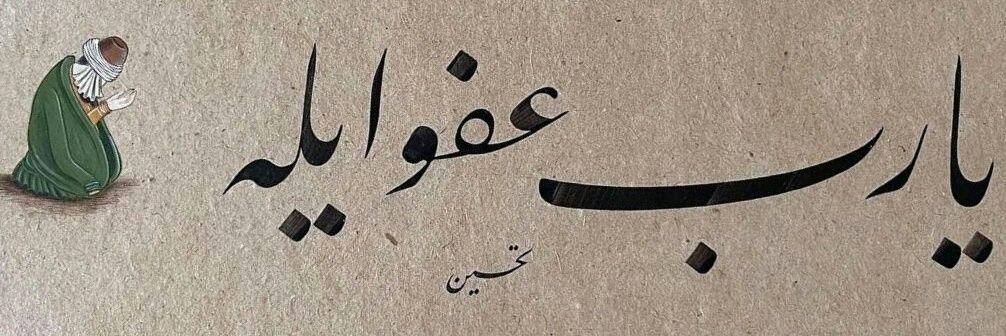 يا رب عفو ايله
تحسين